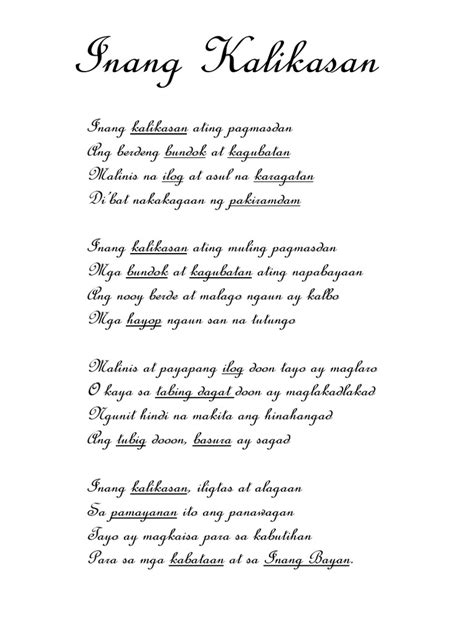 Inang Kalikasan
Inang kalikasan ating pagmasdan
Ang berdeng bundok at kagubatan
Malinis na ilog at asul na karagatan
Di'bat nakakagaan ng pakiramdam
Inang kalikasan ating muling pagmasdan
Mga bundok at kagubatan ating napabayaan
Ang nooy berde at malago ngaun ay kalbo
Mga hayop ngaun san na tutungo
Malinis at payapang ilog doon tayo ay maglaro
O kaya sa tabing dagat doon ay maglakadlakad
Ngunit hindi na makita ang hinahangad
Ang tubig dooon, basura ay sagad
Inang kalikasan, iligtas at alagaan
Sa pamayanan ito ang panawagan
Tayo ay magkaisa para sa kabutihan
Para sa mga kabataan at sa Inang Bayan.